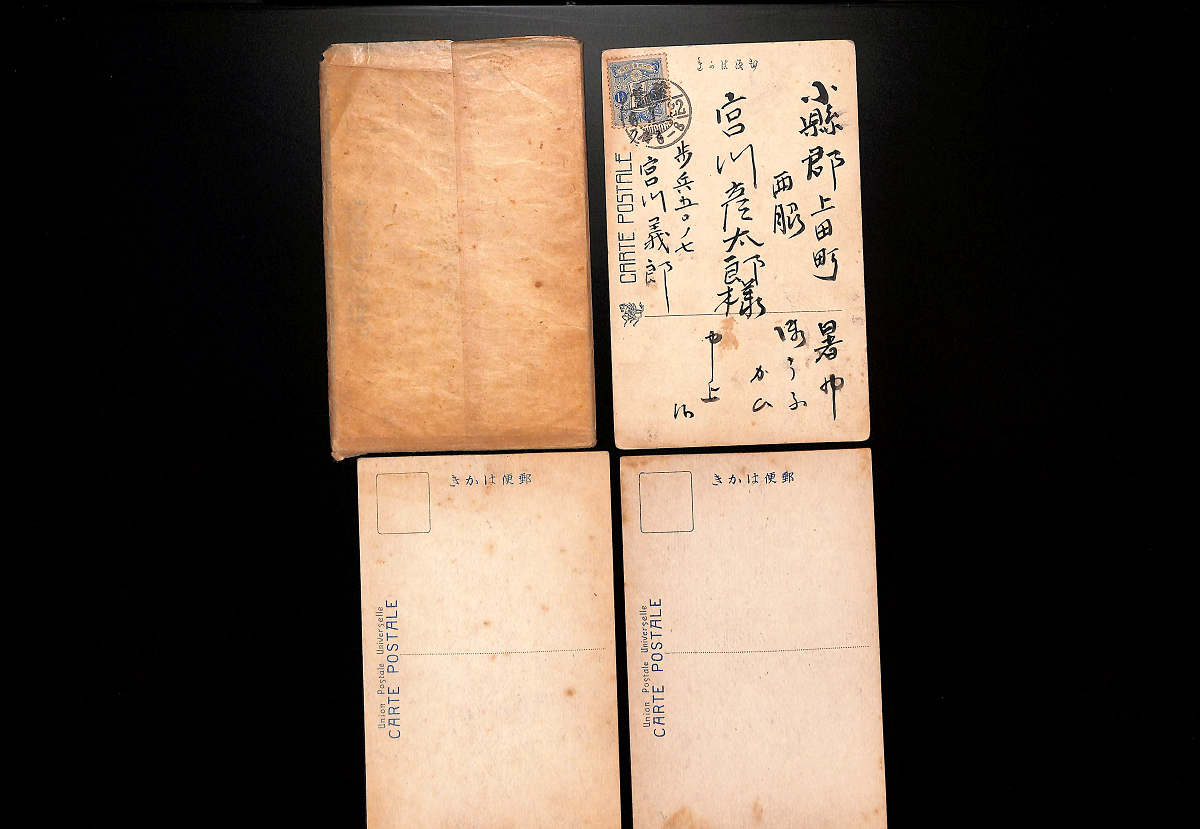 きかは便郵
小縣郡上田町
西脇
宮川彦太郎様
歩兵五〇ノ七
宮川義郎
CARTE POSTALE
暑中
申上
きかは便郵
Union Postale Universelle
CARTE POSTALE
きかは便郵
Union Postale Universelle
CARTE POSTALE